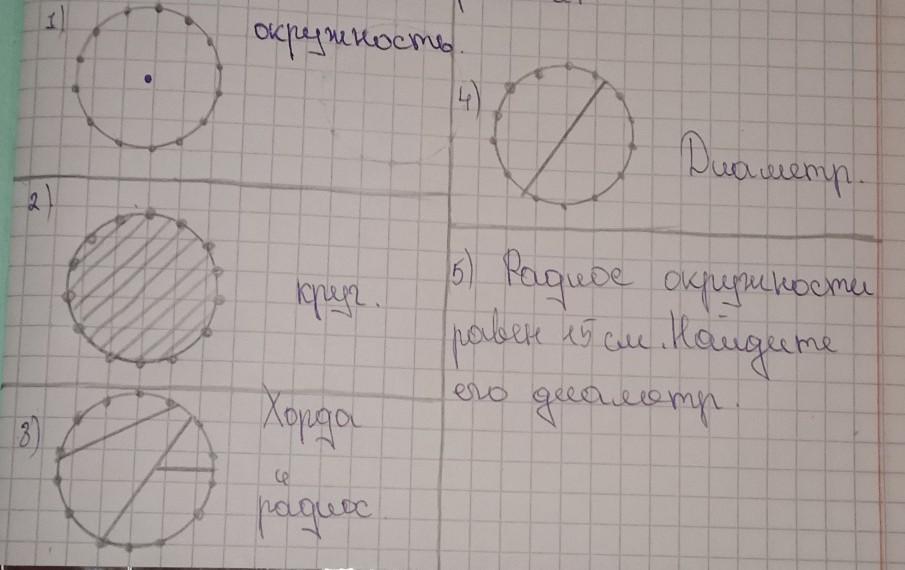 1)
окружность.
2)
круг.
3)
Хорда
и
радиос
4)
Диаметр.
5) Радиос окружности
равен 15 см. Найдите
его диаметр.